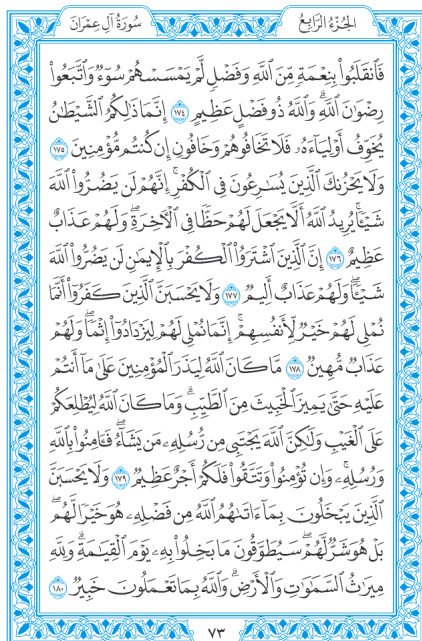 الجزء الرابع
سورة آل عمران
فَٱنقَلَبُواْ بِنِعْمَةٍ مِّنَ ٱللَّهِ وَفَضْلٍ لَّمْ يَمْسَسْهُمْ سُوٓءٌ وَٱتَّبَعُواْ
رِضْوَٰنَ ٱللَّهِۗ وَٱللَّهُ ذُو فَضْلٍ عَظِيمٍ ١٧٤ إِنَّمَا ذَٰلِكُمُ ٱلشَّيْطَٰنُ
يُخَوِّفُ أَوْلِيَآءَهُۥ فَلَا تَخَافُوهُمْ وَخَافُونِ إِن كُنتُم مُّؤْمِنِينَ ١٧٥
وَلَا يَحْزُنكَ ٱلَّذِينَ يُسَٰرِعُونَ فِي ٱلْكُفْرِۚ إِنَّهُمْ لَن يَضُرُّواْ ٱللَّهَ
شَيْـًٔاۗ يُرِيدُ ٱللَّهُ أَلَّا يَجْعَلَ لَهُمْ حَظًّا فِي ٱلْأٓخِرَةِۖ وَلَهُمْ عَذَابٌ
عَظِيمٌ ١٧٦ إِنَّ ٱلَّذِينَ ٱشْتَرَوُاْ ٱلْكُفْرَ بِٱلْإِيمَٰنِ لَن يَضُرُّواْ ٱللَّهَ
شَيْـًٔاۖ وَلَهُمْ عَذَابٌ أَلِيمٌ ١٧٧ وَلَا يَحْسَبَنَّ ٱلَّذِينَ كَفَرُوٓاْ أَنَّمَا
نُمْلِي لَهُمْ خَيْرٌ لِّأَنفُسِهِمْۚ إِنَّمَا نُمْلِي لَهُمْ لِيَزْدَادُوٓاْ إِثْمًاۖ وَلَهُمْ
عَذَابٌ مُّهِينٌ ١٧٨ مَّا كَانَ ٱللَّهُ لِيَذَرَ ٱلْمُؤْمِنِينَ عَلَىٰ مَآ أَنتُمْ
عَلَيْهِ حَتَّىٰ يَمِيزَ ٱلْخَبِيثَ مِنَ ٱلطَّيِّبِۗ وَمَا كَانَ ٱللَّهُ لِيُطْلِعَكُمْ
عَلَى ٱلْغَيْبِ وَلَٰكِنَّ ٱللَّهَ يَجْتَبِي مِن رُّسُلِهِۦ مَن يَشَآءُۖ فَـَٔامِنُواْ بِٱللَّهِ
وَرُسُلِهِۦۚ وَإِن تُؤْمِنُواْ وَتَتَّقُواْ فَلَكُمْ أَجْرٌ عَظِيمٌ ١٧٩ وَلَا يَحْسَبَنَّ
ٱلَّذِينَ يَبْخَلُونَ بِمَآ ءَاتَىٰهُمُ ٱللَّهُ مِن فَضْلِهِۦ هُوَ خَيْرًا لَّهُمۖ
بَلْ هُوَ شَرٌّ لَّهُمْۖ سَيُطَوَّقُونَ مَا بَخِلُواْ بِهِۦ يَوْمَ ٱلْقِيَٰمَةِۗ وَلِلَّهِ
مِيرَٰثُ ٱلسَّمَٰوَٰتِ وَٱلْأَرْضِۗ وَٱللَّهُ بِمَا تَعْمَلُونَ خَبِيرٌ ١٨٠
٧٣